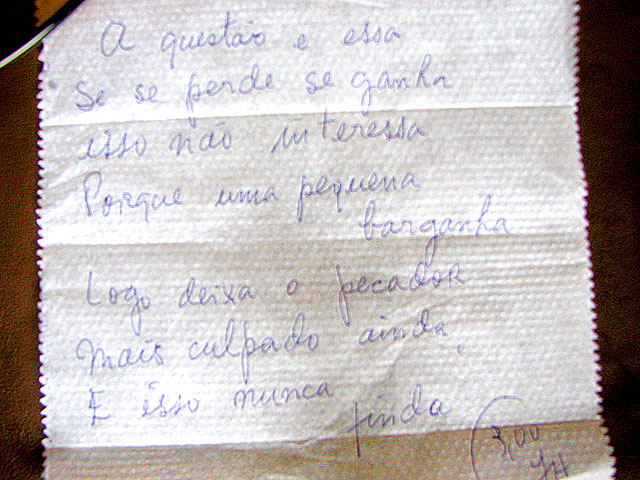 A questão e essa
Se se perde se ganha
isso não interessa
Porque uma pequena
barganha
Logo deixa o pecador
Mais culpado ainda.
E isso nunca
finda
3,00